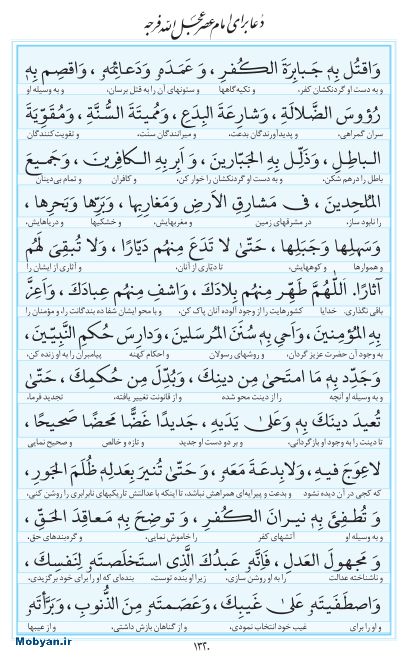 دعا برای امام عصر عجل الله فرجه
وَاقتُل بِهِ جَبابِرَةَ الكُفرِ ، وَعَمَدَهُ وَدَعائِمَهُ ، وَاقصِم بِهِ
و به دست او گردنکشان کفر، و تکیه‌گاهها و ستونهای آن را به قتل برسان، و به وسیله او
رُؤوسَ الضَّلالَةِ ، وَشارِعَةَ البِدَعِ ، وَمُميتَةَ السُّنَّةِ ، وَمُقَوِّيَةَ
سران گمراهی، و پدیدآورندگان بدعت، و میرانندگان سنّت، و تقویت کنندگان
الباطِلِ ، وَذَلِّل بِهِ الجَبّارينَ ، وَأبِر بِهِ الكافِرينَ ، وَجَميعَ
باطل را درهم شکن، و به دست او گردنکشان را خوار کن، و کافران و تمام بی‌دینان
المُلحِدينَ ، في مَشارِقِ الأرضِ وَمَغارِبِها ، وَبَرِّها وَبَحرِها ،
را نابود ساز، در مشرقهای زمین و مغربهایش، و خشکیها و دریاهایش،
وَسَهلِها وَجَبَلِها ، حَتّىٰ لا تَدَعَ مِنهُم دَيّارًا ، وَلا تُبقِيَ لَهُم
و هموارها و کوههایش، تا دیّاری از آنان، و آثاری از ایشان را
آثارًا. اَللّٰهُمَّ طَهِّر مِنهُم بِلادَكَ ، وَاشفِ مِنهُم عِبادَكَ ، وَأعِزَّ
باقی نگذاری. خدایا کشورهایت را از وجود آلوده آنان پاک کن، و با محو ایشان شفا ده بندگانت را، و مؤمنان را
بِهِ المُؤمِنينَ ، وَأحيِ بِهِ سُنَنَ المُرسَلينَ ، وَدارِسَ حُكمِ النَّبِيّينَ ،
به وجود آن حضرت عزیز گردان، و روشهای رسولان و احکام کهنه پیامبران را به او زنده کن،
وَجَدِّد بِهِ مَا امتَحىٰ مِن دينِكَ ، وَبُدِّلَ مِن حُكمِكَ ، حَتّىٰ
و به وسیله او آنچه را از دینت محو شده و از قانونت تغییر یافته، تجدید فرما،
تُعيدَ دينَكَ بِهِ وَعَلىٰ يَدَيهِ ، جَديدًا غَضًّا مَحضًا صَحيحًا ،
تا دینت را به وجود او بازگردانی، و بر دو دست او جدید و تازه و خالص و صحیح نمایی
لاعِوَجَ فيهِ ، وَلابِدعَةَ مَعَهُ ، وَحَتّىٰ تُنيرَ بِعَدلِهِ ظُلَمَ الجَورِ ،
که کجی در آن دیده نشود و بدعت و پیرایه‌ای همراهش نباشد، تا اینکه با عدالتش تاریکیهای نابرابری را روشن کنی،
وَتُطفِئَ بِهِ نيرانَ الكُفرِ ، وَتوضِحَ بِهِ مَعاقِدَ الحَقِّ ،
و به وسیله او آتشهای کفر را خاموش نمایی، و گره‌بندهای حق،
وَمَجهولَ العَدلِ ، فَإنَّهُ عَبدُكَ الَّذِي استَخلَصتَهُ لِنَفسِكَ ،
و ناشناخته عدالت را به او روشن سازی، زیرا او بنده توست، بنده‌ای که او را برای خود برگزیدی،
وَاصطَفَيتَهُ عَلىٰ غَيبِكَ ، وَعَصَمتَهُ مِنَ الذُّنوبِ ، وَبَرَّأتَهُ
و او را برای غیب خود انتخاب نمودی، و از گناهان بازش داشتی، و از عیبها
۱۳۲۰
Mobyan.ir